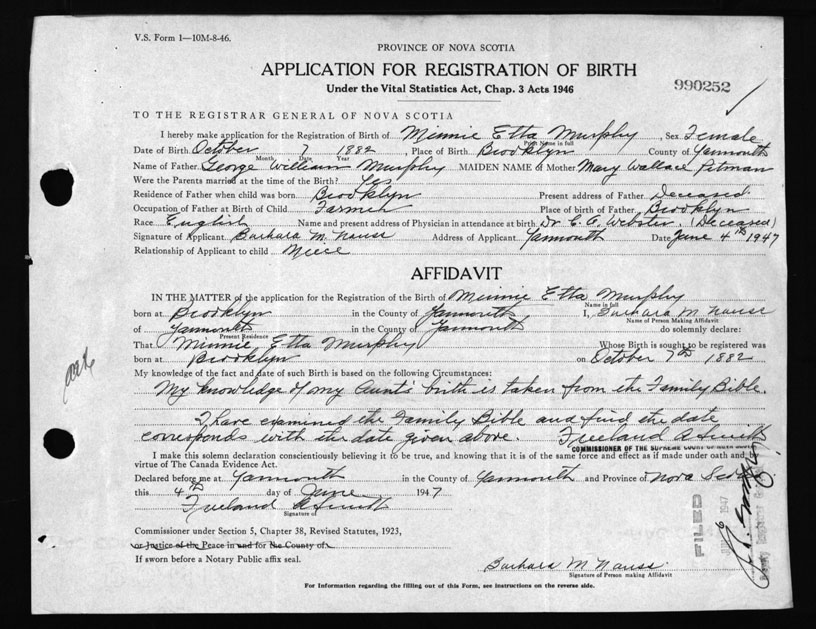 V.S. Form 1—10M-8-46.
PROVINCE OF NOVA SCOTIA
APPLICATION FOR REGISTRATION OF BIRTH
990252
Under the Vital Statistics Act, Chap. 3 Acts 1946
TO THE REGISTRAR GENERAL OF NOVA SCOTIA
I hereby make application for the Registration of Birth of Minnie Etta Murphy, Sex Female
Print Name in full
Date of Birth October 7 1882, Place of Birth Brooklyn County of Yarmouth
Month Date Year
Name of Father George William Murphy MAIDEN NAME of Mother Mary Wallace Pitman
Were the Parents married at the time of the Birth? Yes
Residence of Father when child was born Brooklyn Present address of Father Deceased
Occupation of Father at Birth of Child Farmer Place of birth of Father Brooklyn
Race English Name and present address of Physician in attendance at birth Dr. C. A. Webster. (Deceased)
Signature of Applicant Barbara M. Nauss Address of Applicant Yarmouth Date June 4th 1947
Relationship of Applicant to child Niece
AFFIDAVIT
IN THE MATTER of the application for the Registration of the Birth of Minnie Etta Murphy
Name in full
born at Brooklyn in the County of Yarmouth I, Barbara M Nauss
Name of Person Making Affidavit
of Yarmouth in the County of Yarmouth do solemnly declare:
Present Residence
That Minnie Etta Murphy Whose Birth is sought to be registered was
born at Brooklyn on October 7th 1882
My knowledge of the fact and date of such Birth is based on the following Circumstances:
My knowledge of my Aunt's birth is taken from the Family Bible.
I have examined the Family Bible and find the date
corresponds with the date given above. Freeland A Smith
COMMISSIONER OF THE SUPREME COURT OF
I make this solemn declaration conscientiously believing it to be true, and knowing that it is of the same force and effect as if made under oath and
virtue of The Canada Evidence Act.
Declared before me at Yarmouth in the County of Yarmouth and Province of Nova Scotia
this 4th day of June 1947
Freeland A Smith
Signature of
Commissioner under Section 5, Chapter 38, Revised Statutes, 1923,
or Justice of the Peace in and for the County of
If sworn before a Notary Public affix seal.
FILED
1947
Barbara M Nauss
Signature of Person making Affidavit
For Information regarding the filling out of this Form, see instructions on the reverse side.